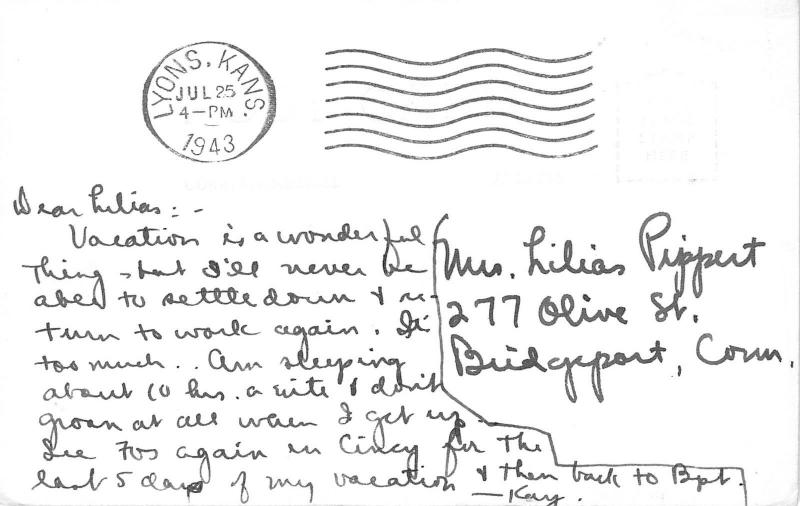 LYONS, KANS.
JUL 25
4-PM
1943
PLACE
STAMP
HERE
Dear Lilias: -
Vacation is a wonderful
thing - but I'll never be
able to settle down & re-
turn to work again. It'
too much.. Am sleeping
about 10 hrs. a nite & don't
groan at all when I get up.
See Fos again in Cincy for the
last 5 days of my vacation & then back to Bpt.
—Kay.
Mrs. Lilias Pippert
277 Olive St.
Bridgeport, Conn.